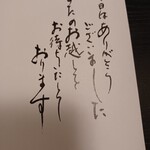 日はありがとう
ございました
またのお越しを
お待ちいたして
おります